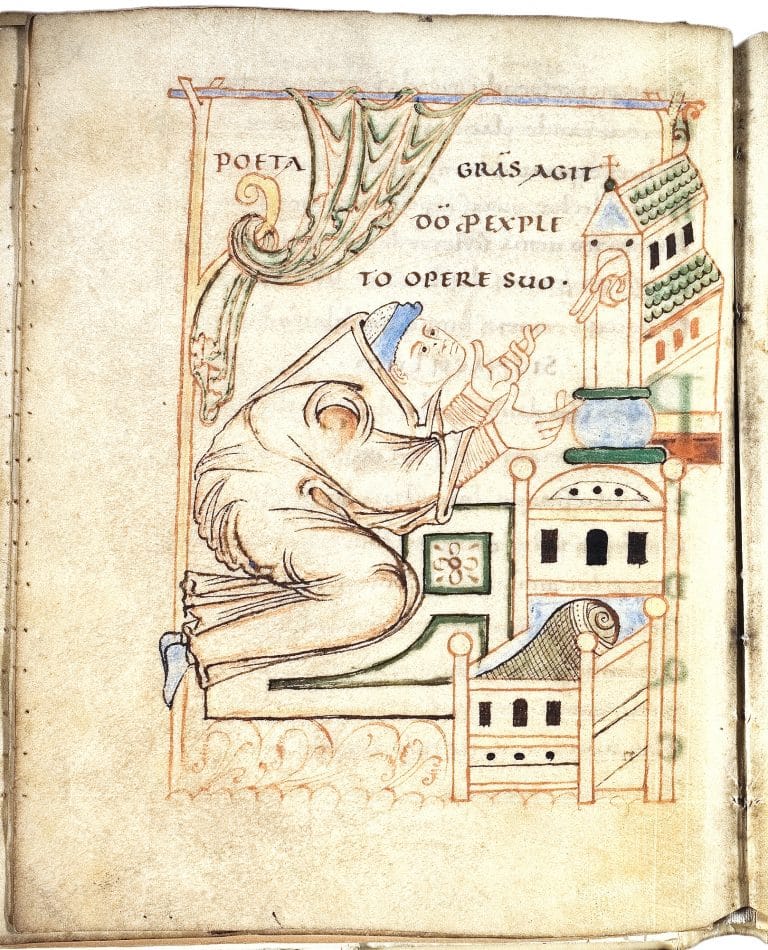 POETA GRĀS AGIT
DŌ ꝒEXPLE
TO OPERE SUO·